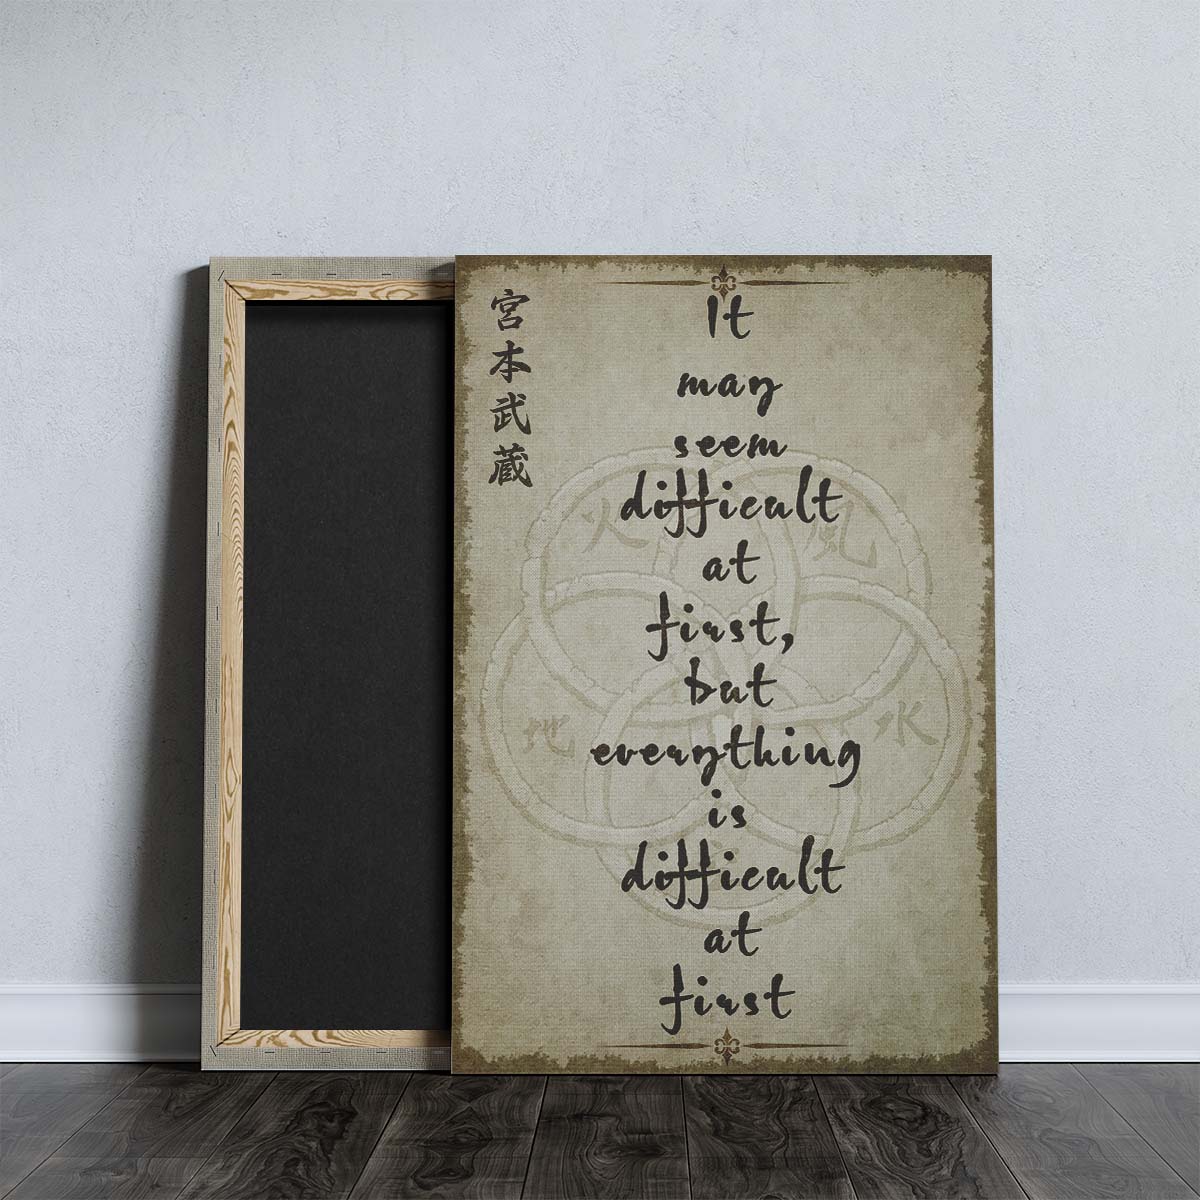 宮本武蔵
It
may
seem
difficult
at
first,
but
everything
is
difficult
at
first
火
風
地
水